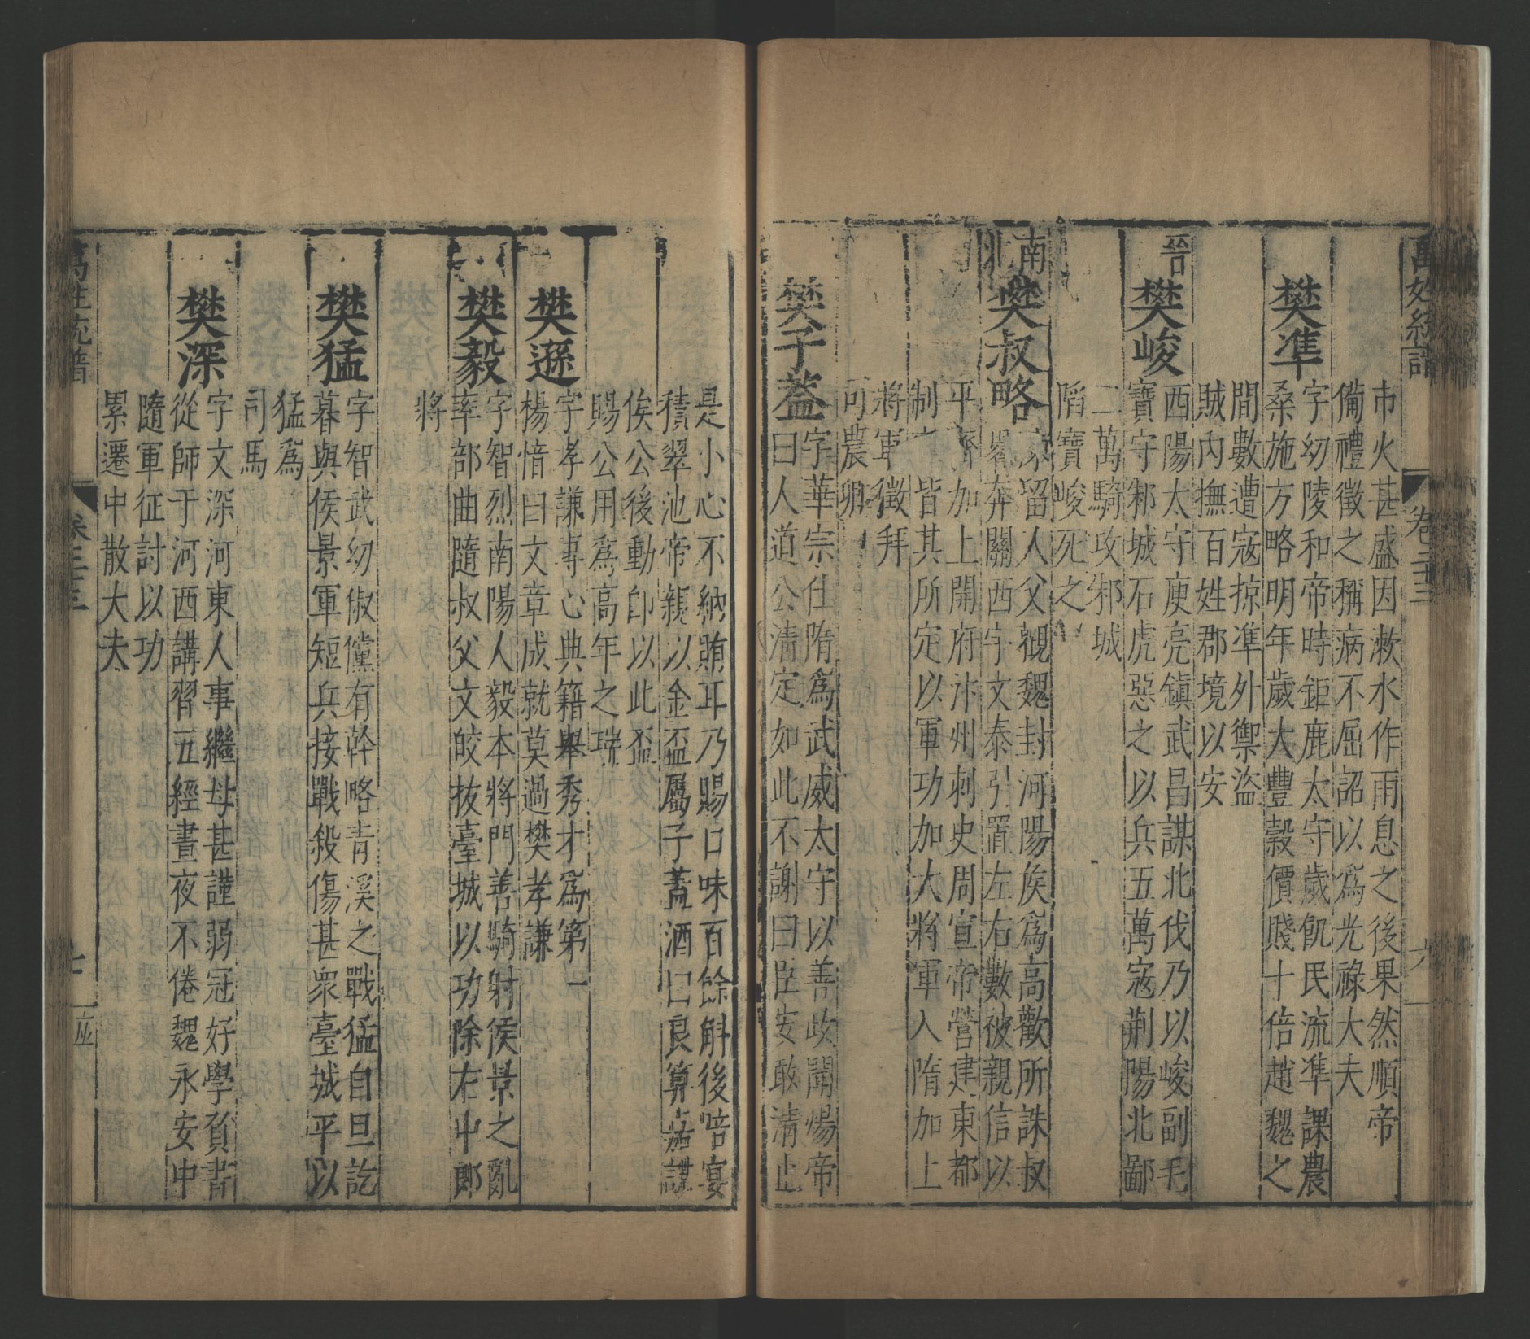 萬姓統譜
卷二十三
六
市火甚盛因救水作雨息之後果然順帝
備禮徵之稱病不屈詔以為光祿大夫
樊準
字幼陵和帝時鉅鹿太守歲飢民流準課農
桑施方略明年歲大豐穀價賤十倍趙魏之
間數遭寇掠準外禦盜
賊內撫百姓郡境以安
晉
樊峻
西陽太守庾亮鎮武昌謀北伐乃以峻副毛
寶守邾城石虎惡之以兵五萬寇荊陽北鄙
二萬騎攻邾城
陷寶峻死之
南北
樊叔略
陳留人父觀魏封河陽侯為高歡所誅叔
略奔關西宇文泰引置左右數被親信以
平齊加上開府汴州刺史周宣帝營建東都
制度皆其所定以軍功加大將軍入隋加上
將軍徵拜
司農卿
樊子蓋
字華宗仕隋為武威太守以善政聞煬帝
曰人道公清定如此不謝曰臣安敢清止
是小心不納賄耳乃賜口味百餘斛後嘗宴
積翠池帝親以金盃屬子蓋酒曰良算嘉謀
俟公後動即以此盃
賜公用為高年之瑞
樊遜
字孝謙專心典籍舉秀才為第一
楊愔曰文章成就莫過樊孝謙
樊毅
字智烈南陽人毅本將門善騎射侯景之亂
率部曲隨叔父文皎拔臺城以功除右中郎
將
樊猛
字智武幼俶儻有幹略青溪之戰猛自旦訖
暮與侯景軍短兵接戰殺傷甚眾臺城平以
猛為
司馬
樊深
字文深河東人事繼母甚謹弱冠好學負書
從師于河西講習五經晝夜不倦魏永安中
隨軍征討以功
累遷中散大夫
萬姓統譜
卷二十三
七